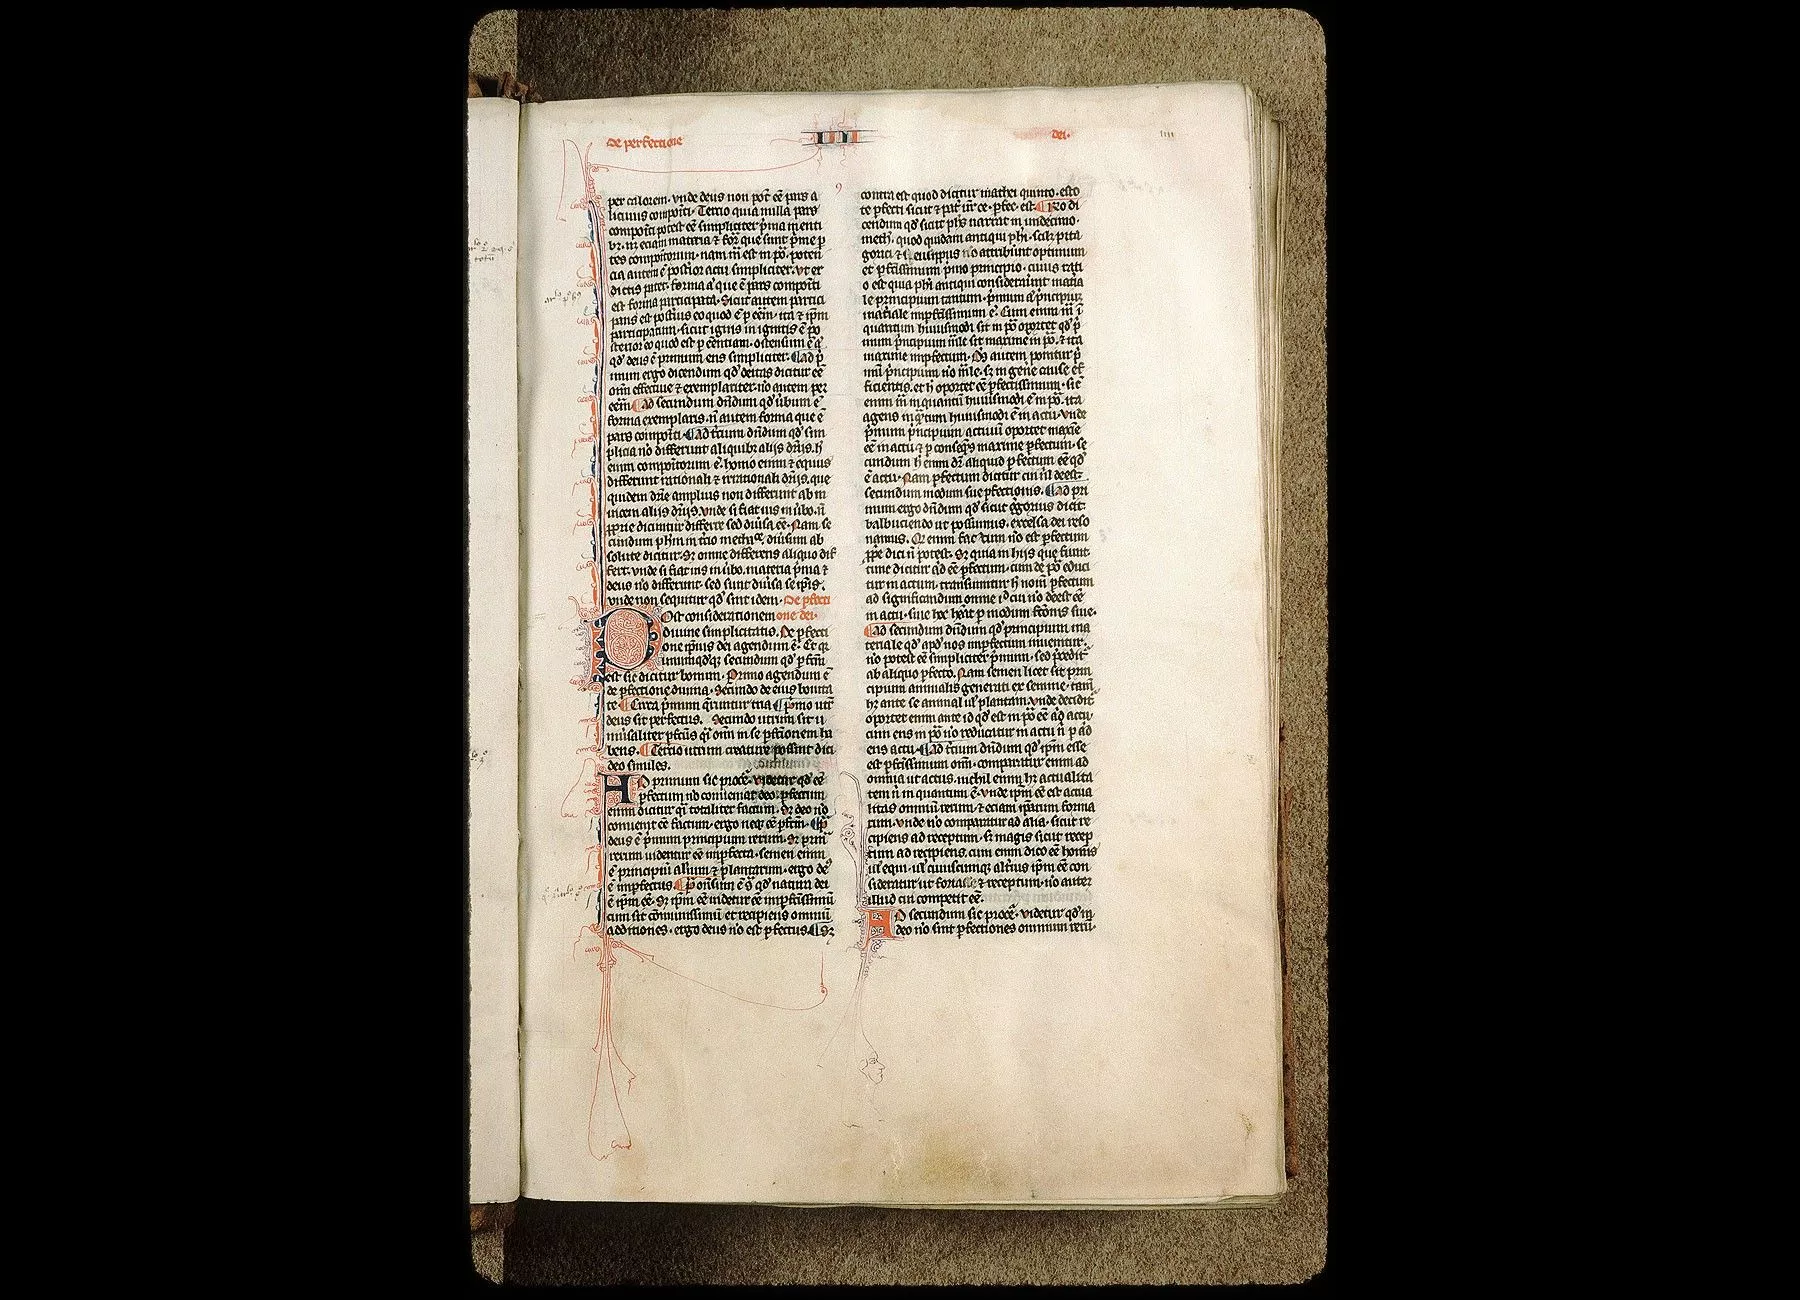 de perfectione
IIII
dei.
IIII
per calorem. vnde deus non pot̄ eē pars a
licuius compoīti. Tertio quia nulla pars
compoīti potest eē simpliciter p̄ma in enti
bꝫ. nec eciam materia ⁊ forā que sunt p̄me p̄
tes compoītorum. nam mā est in po. poten
cia autem ē posterior actu simpliciter. vt ex
dictis patet. forma aū que ē pars compoīti
est forma participata. Sicut autem partici
pans est posterius eo quod ē p eēm. ita ⁊ ip̄m
participatum. sicut ignis in ignitis ē po
sterior eo quod est p eēntiam. ostensum ē aū
qd̓ deus ē primum ens simpliciter. Ad p̄
mum ergo dicendum qd̓ deitas dicitur eē
om̄ effectiue ⁊ exemplariter. nō autem per
eēm. Ad secundum dn̄dum qd̓ ūbum ē
forma exemplaris. n̄ autem forma que ē
pars compoīti. Ad tcium dn̄dum qd̓ sim
plicia nō differunt aliquibꝫ alijs dr̄ijs. h̄
enim compoītorum ē. homo enim ⁊ equus
differunt rationali ⁊ irrationali dr̄ijs. que
quidem dr̄ie amplius non differunt ab in
uicem alijs dr̄ijs. vnde si fiat uis in ūbo. n̄
p̱prie dicuntur differre sed diūsa eē. Nam se
cundum ph̄m in tcio methaᵉ. diūsum ab
solute dicitur. Sꝫ omne differens aliquo dif
fert. vnde si fiat uis in ūbo. materia p̄ma ⁊
deus nō differunt. sed sunt diūsa se ip̄is.
vnde non sequitur qd̓ sint idem. De p̱fecti
Post considerationem one dei.
diuine simplicitatis. De p̱fecti
one ip̄ius dei agendum ē. Et qꝛ
unumqdqꝫ secundum qd̓ p̱fcm̄
est sic dicitur bonum. Primo agendum ē
de p̱fectione diuina. Secundo de eius bonita
te. Circa p̄mum q̄runtur tria. Primo utr̄
deus sit perfectus. Secundo utrum sit u
niūsaliter p̱fcūs qi om̄ in se p̱fctionem ha
bens. Tertio utrum creature possint dici
deo similes.
Ad primum sic procē. videtur qd̓ eē
p̱fectum nō conueniat deo. p̱fectum
enim dicitur qi totaliter factum. Sꝫ deo nō
conuenit eē factum. ergo neqꝫ eē p̱fcm̄. P̄
deus ē p̄mum principium rerum. Sꝫ prin̄
rerum uidentur eē imp̱fecta. semen enim
ē principium alīum ⁊ plantarum. ergo de9
ē imp̱fectus. P̄ onsum ē s̄ qd̓ natura dei
ē ip̄m eē. Sꝫ ip̄m eē uidetur eē imp̱fctissimū
cum sit cōmunissimū et recipiens omnium
additiones. ergo deus nō est p̱fectus. Sꝫ
contra est quod dicitur mathei quinto. esto
te p̱fecti sicut ⁊ pat̄ ur̄ ce. p̱fec. est. Rō di
cendum qd̓ sicut ph̄s narrat in undecimo.
meth. quod quidam antiqui ph̄i. scilꝫ pita
gorici ⁊ leusippus nō attribūnt optimum
et p̱fctissimum p̄mo principio. cuius rati
o est quia ph̄i antiqui considerārunt mat̄ia
le principium tantum. p̄mum aū p̄ncipium
mat̄iale imp̱fctissimum ē. Cum enim mā ī
quantum huiusmodi sit in po. oportet qd̓ p̄
mum p̄ncipium māle sit maxime in po. ⁊ ita
maxime imp̱fectum. Deus autem ponitur p̄
mū p̄ncipium nō māle. sꝫ in gene̅ cause ef
ficientis. et h̄ oportet eē p̱fectissimum. sic̄
enim mā in quantū huiusmodi ē in po. ita
agens in qntum huiusmodi ē in actu. vnde
p̄mum p̄ncipium actiuū oportet maxīe
eē in actu ⁊ p conseq̄ns maxime p̱fectum. se
cundum h̄ enim dr̄ aliquid p̱fectum eē qd̓
ē actu. Nam p̱fectum dicitur cui nl̄ deest.
secundum modum sue p̱fectionis. Ad pri
mum ergo dn̄dum qd̓ sicut ḡgorius dicit
balbuciendo ut possumus. excelsa dei reso
namus. Qd̓ enim factum nō est p̱fectum
p̱pe dici n̄ potest. Sꝫ quia in hijs que fiunt
tunc dicitur aliqd̓ eē p̱fectum. cum de po educi
tur in actum. transumitur h̄ nom̄ p̱fectum
ad significandum omne id̓ cui nō deest eē
in actu. siue hoc hēat p modum fctōnis siue.
Ad secundum dn̄dum qd̓ principium ma
teriale qd̓ apd̓ nos imp̱fectum inuenitur.
nō potest eē simpliciter p̄mum. sed p̄cedit̄
ab aliquo p̱fecto. Nam semen licet sit prin
cipium animalis generati ex semine. tam̄
hꝫ ante se animal ul̄ plantam. vnde decidit̄
oportet enim ante id qd̓ est in po eē aliqd̓ actu.
cum ens in po nō reducatur in actū n̄ p aliqd̓
ens actu. Ad tcium dn̄dum qd̓ ip̄m esse
est p̱fctissimum om̄. comparatur enim ad
omnia ut actus. nichil enim hꝫ actualita
tem n̄ in quantum ē. vnde ip̄m eē est actua
litas omniū rerum. ⁊ eciam ip̄arum forma
rum. vnde nō comparatur ad alia. sicut re
cipiens ad receptum. sꝫ magis sicut recep
tum ad recipiens. cum enim dico eē hominis
ul̄ equi. ul̄ cuiuscumqꝫ alt̄ius ip̄m eē con
sideratur ut formale ⁊ receptum. nō autem
illud cui competit eē.
Ad secundum sic procē. videtur qd̓ in
deo nō sint p̱fectiones omnium rerū.